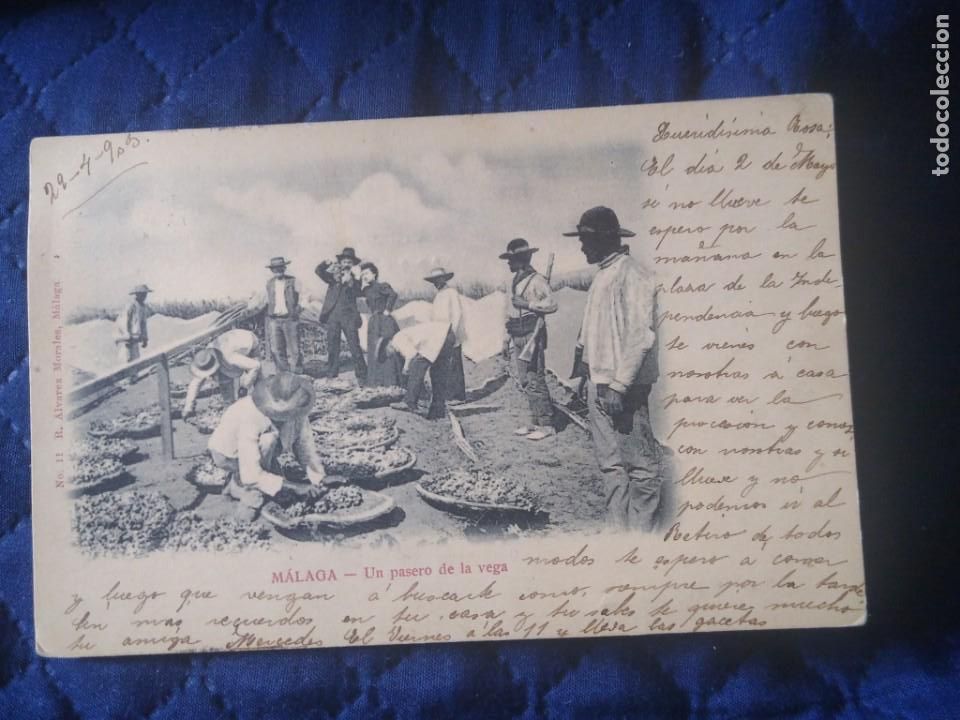 29-4-903.
Queridísima Rosa;
El día 2 de Mayo
si no llueve te
espero por la
mañana en la
plaza de la Inde-
pendencia y luego
te vienes con
nosotras á casa
para ver la
procesion y comes
con nosotras y si
llueve y no
podemos ir al
Retiro de todos
modos te espero a comer
y luego que vengan á buscarte como siempre por la tarde
Sin mas recuerdos en tu casa y tu sabes te quiere mucho
tu amiga Mercedes El Viernes á las 11 y lleva las gacetas
No. 11 R. Alvarez Morales, Málaga
MÁLAGA — Un pasero de la vega
todocoleccion